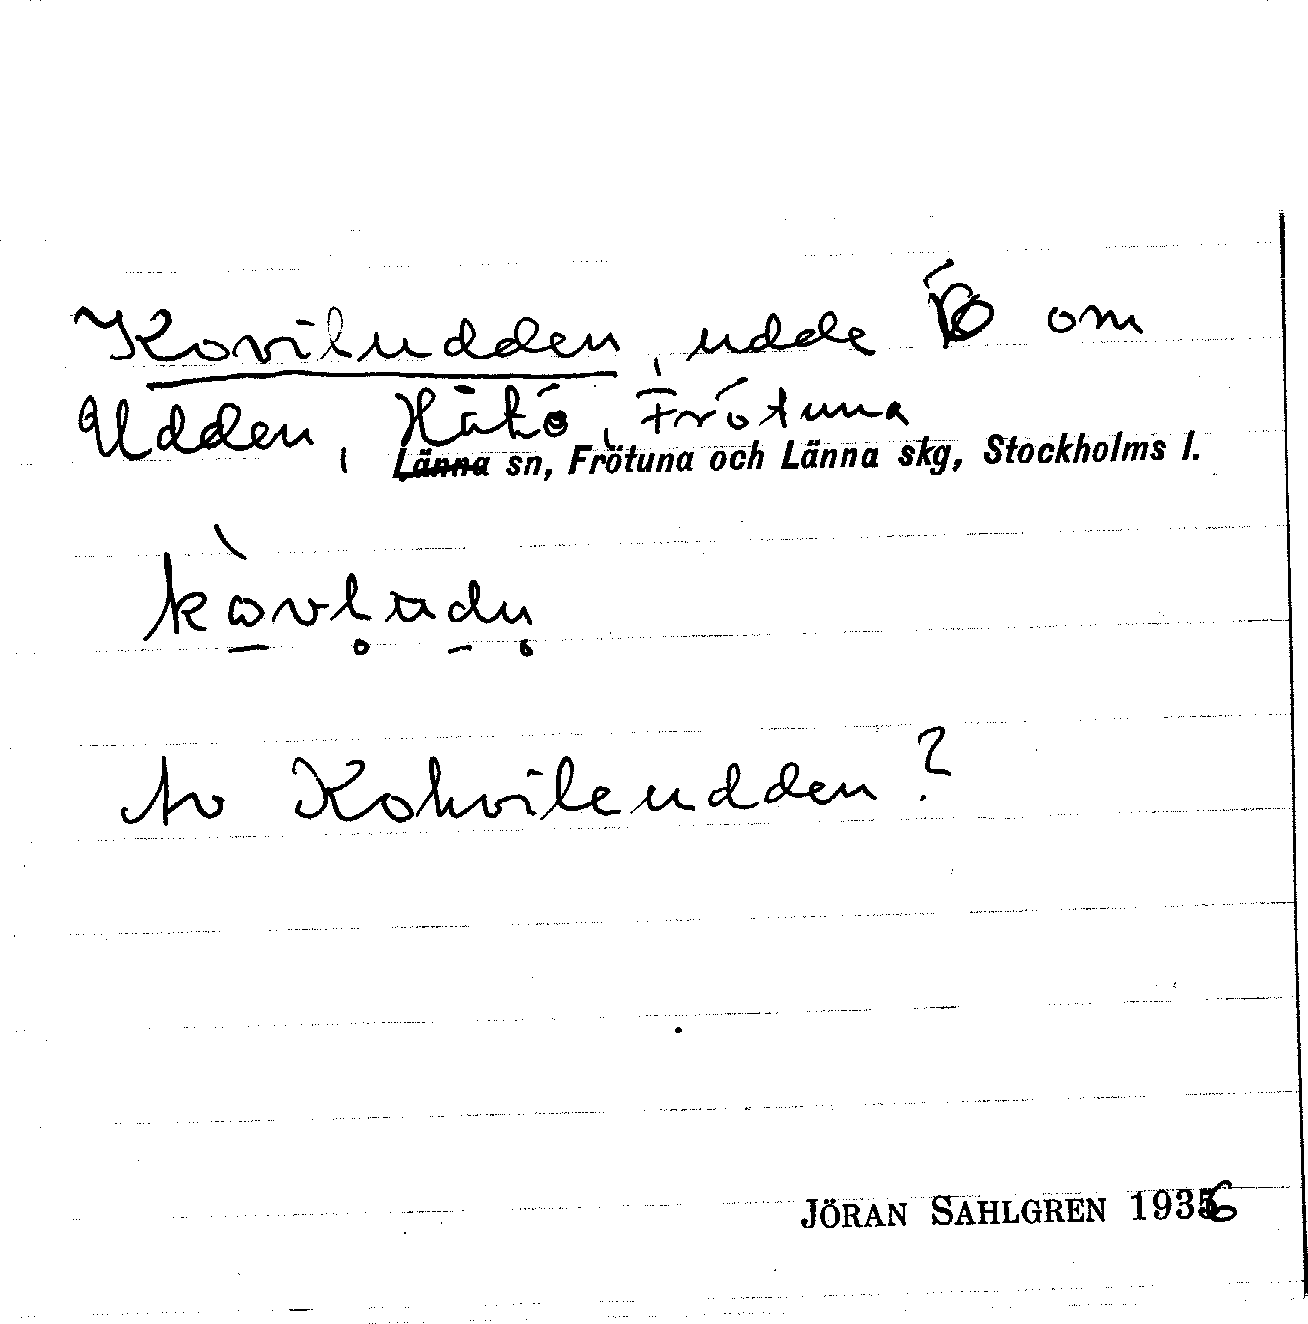 Koviludden, udde Ö om
Udden, Hätö, Frötuna
Länna sn, Frötuna och Länna skg, Stockholms l.
kòvl̥udn̥
Av Kohvileudden?
JÖRAN SAHLGREN 1936